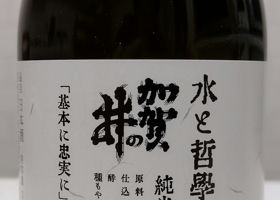 水と哲學
加賀の井
純米
原料
仕込
酵
種もや
「基本に忠実に」
日本酒